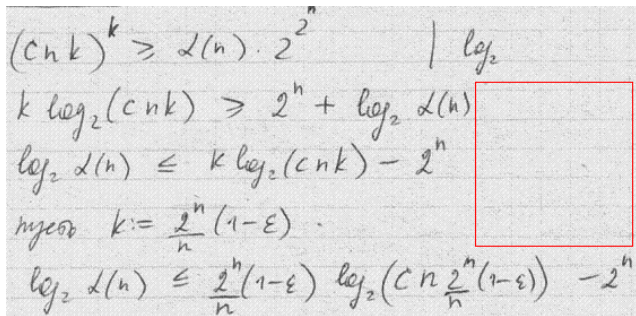 (cnk)^k ≥ α(n) · 2^{2^n} | log₂
k log₂(cnk) ≥ 2^n + log₂ α(n)
log₂ α(n) ≤ k log₂(cnk) − 2^n
пусть k := 2^n/n (1−ε).
log₂ α(n) ≤ 2^n/n (1−ε) log₂(cn 2^n/n (1−ε)) − 2^n